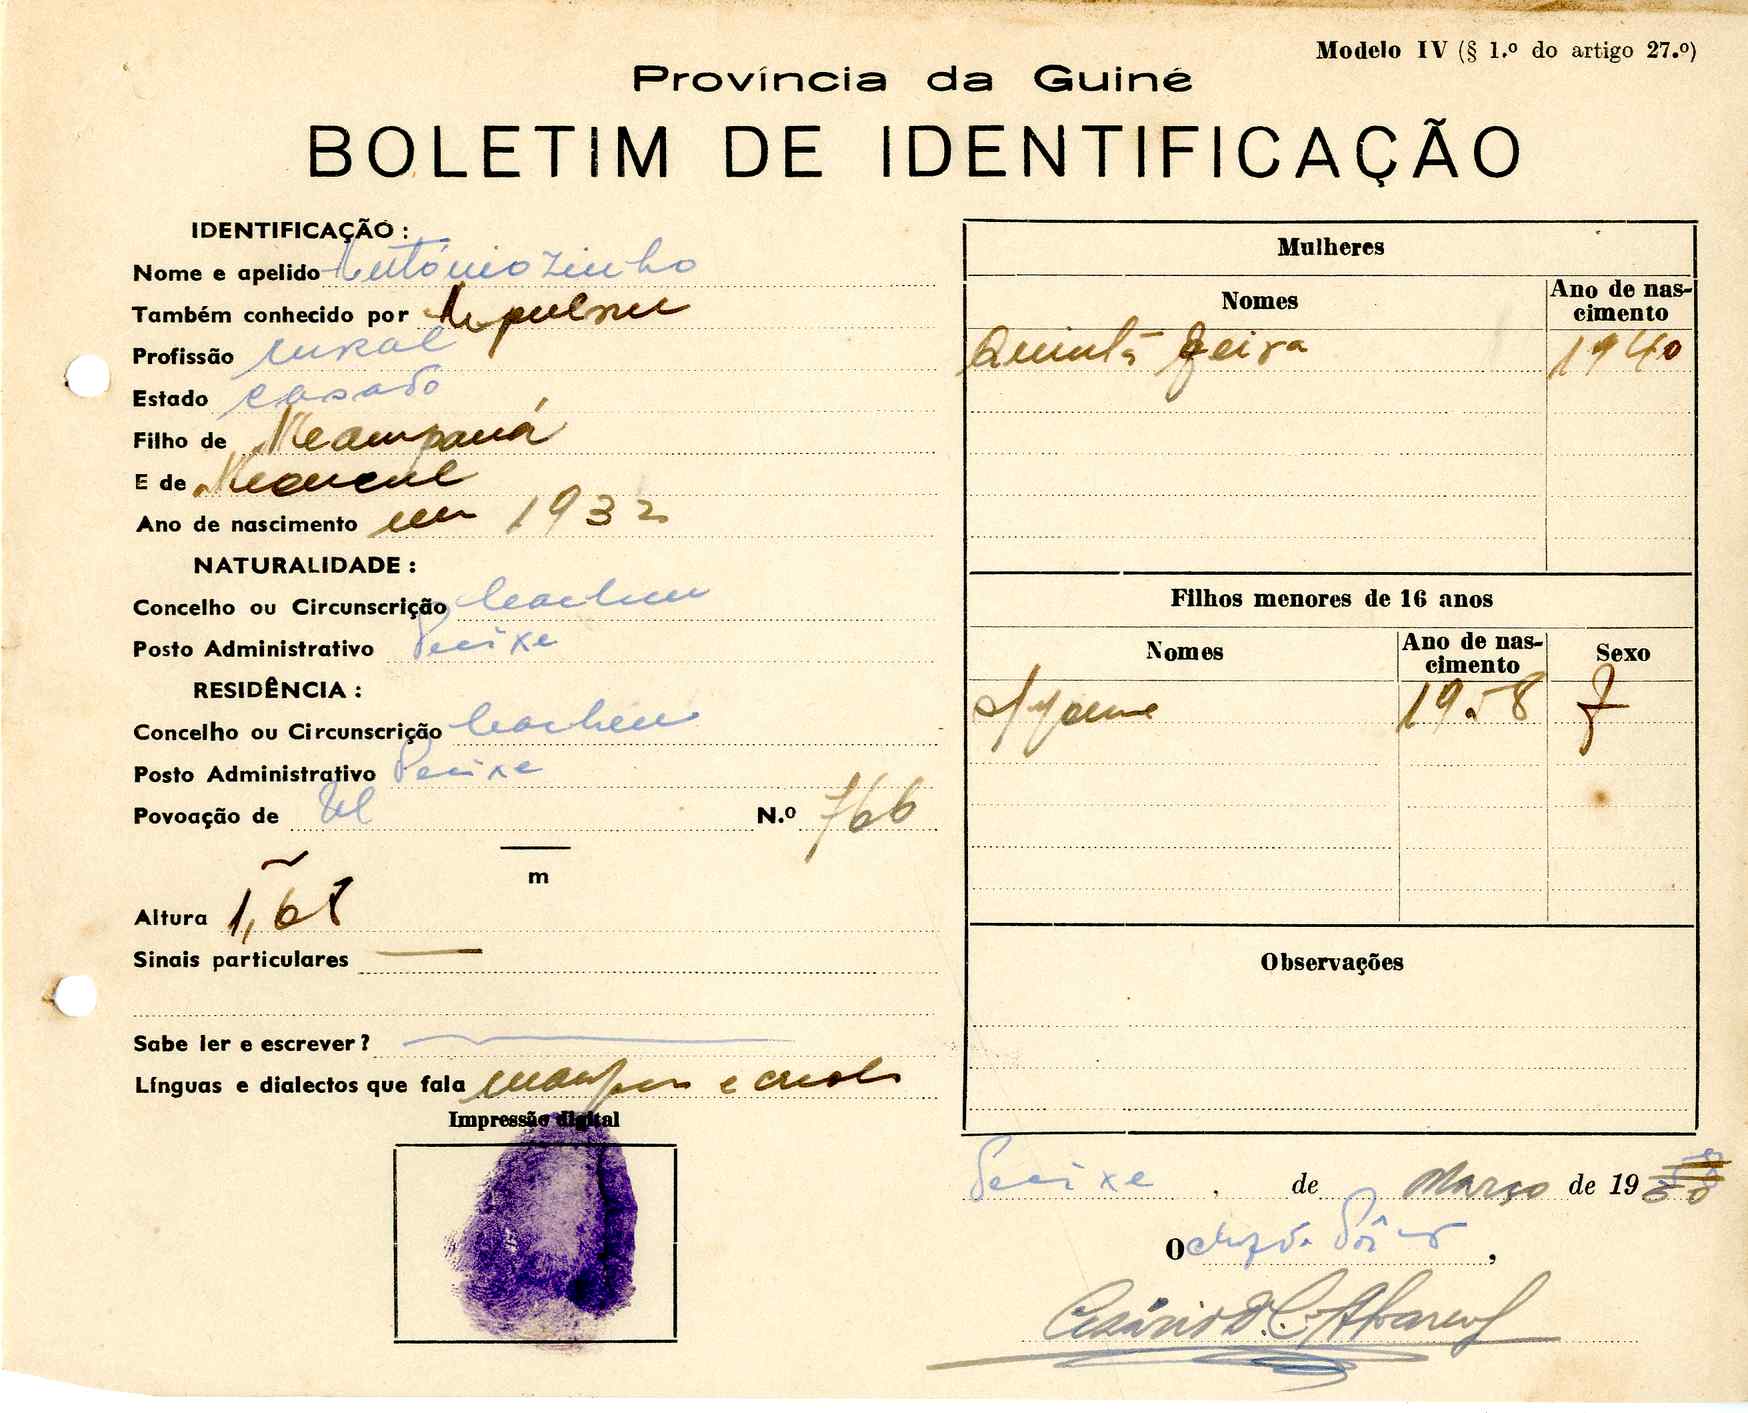 Modelo IV (§ 1.º do artigo 27.º)
Província da Guiné
BOLETIM DE IDENTIFICAÇÃO
IDENTIFICAÇÃO :
Nome e apelido Antóniozinho
Também conhecido por
Profissão rural
Estado casado
Filho de
E de
Ano de nascimento em 1932
NATURALIDADE :
Concelho ou Circunscrição Cacheu
Posto Administrativo Pecixe
RESIDÊNCIA :
Concelho ou Circunscrição Cacheu
Posto Administrativo Pecixe
Povoação de N.º 766
m
Altura 1,68
Sinais particulares
Sabe ler e escrever?
Línguas e dialectos que fala e
Impressão digital
Mulheres
Nomes Ano de nas-
cimento
Quinta feira 1940
Filhos menores de 16 anos
Nomes Ano de nas-
cimento Sexo
1958 f
Observações
Pecixe , de Março de 19
O chefe de Pôsto ,